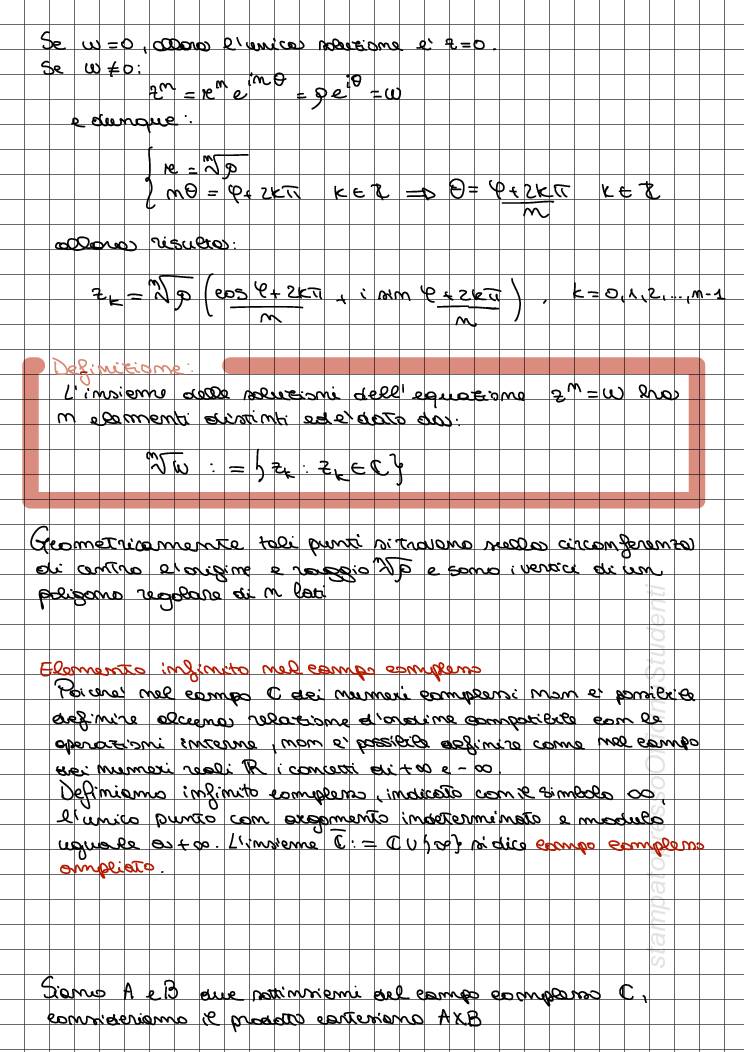 Se w=0, allora l'unica soluzione è z=0.
Se w≠0:
zⁿ = rⁿ e^{inθ} = ρe^{iθ} = w
e dunque:
{ r = ⁿ√ρ
nθ = φ+2kπ k∈ℤ ⇒ θ = (φ+2kπ)/n k∈ℤ
allora risulta:
z_k = ⁿ√ρ (cos (φ+2kπ)/n + i sin (φ+2kπ)/n), k=0,1,2,...,n-1
Definizione:
L'insieme delle soluzioni dell'equazione zⁿ=w ha
n elementi distinti ed è dato da:
ⁿ√w := {z_k : z_k ∈ ℂ}
Geometricamente tali punti si trovano sulla circonferenza
di centro l'origine e raggio ⁿ√ρ e sono i vertici di un
poligono regolare di n lati
Elemento infinito nel campo complesso
Poiché nel campo ℂ dei numeri complessi non è possibile
definire alcuna relazione d'ordine compatibile con le
operazioni interne, non è possibile definire come nel campo
dei numeri reali ℝ i concetti di +∞ e -∞.
Definiamo infinito complesso, indicato con il simbolo ∞,
l'unico punto con argomento indeterminato e modulo
uguale a +∞. L'insieme ℂ̅ := ℂ∪{∞} si dice campo complesso
ampliato.
Siano A e B due sottinsiemi del campo complesso ℂ,
consideriamo il prodotto cartesiano A×B
Studenti